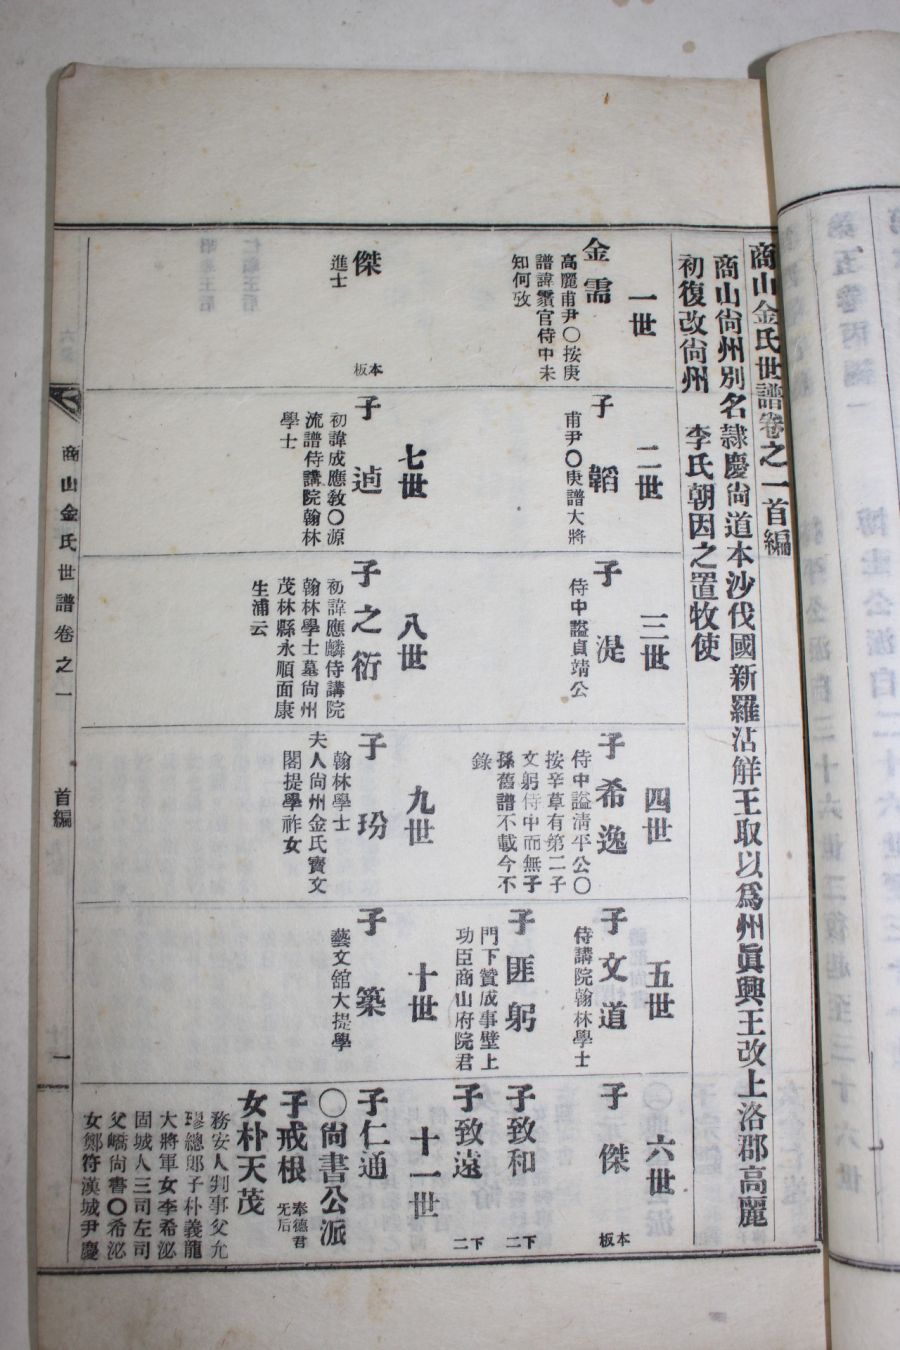 商山金氏世譜卷之一首編
商山尙州別名隷慶尙道本沙伐國新羅沾觧王取以爲州眞興王改上洛郡高麗
初復改尙州　李氏朝因之置牧使
一世
金需
高麗甫尹〇按庚
譜諱䨏官侍中未
知何攷
二世
子 韜
甫尹〇庚譜大將
三世
子 湜
侍中謚貞靖公
四世
子希逸
侍中謚淸平公〇
按辛草有第二子
文躬侍中而無子
孫舊譜不載今不
錄
五世
子文道
侍講院翰林學士
子匪躬
門下贊成事壁上
功臣商山府院君
六世
子 傑
本板
子致和
下二
子致遠
下二
傑
進士
本板
七世
子 逈
初諱成應敎〇源
流譜侍講院翰林
學士
八世
子之衍
初諱應麟侍講院
翰林學士墓尙州
茂林縣永順面康
生浦云
九世
子 玢
翰林學士
夫人尙州金氏寶文
閣提學祚女
十世
子 築
藝文舘大提學
十一世
子仁通
〇尙書公派
子戒根
奉德君
旡后
女朴天茂
務安人判事父允
璆總郞子朴義龍
大將軍女李希泌
固城人三司左司
父嶠尙書〇希泌
女鄭符漢城尹慶
商山金氏世譜卷之一
首編
一